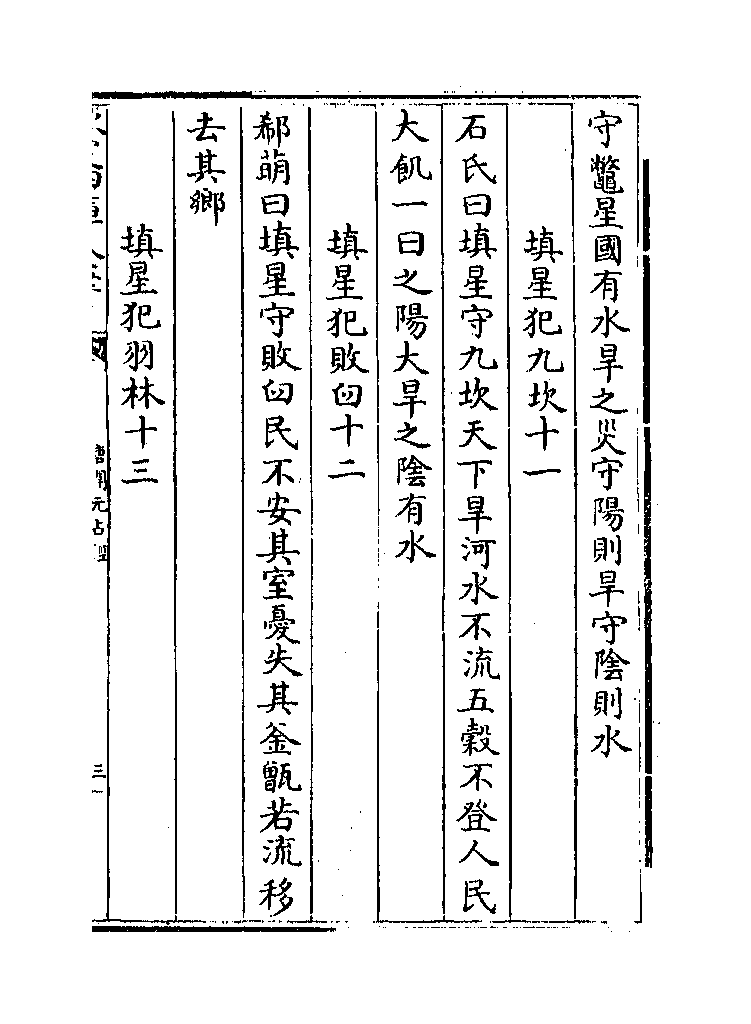 守鼈星國有水旱之災守陽則旱守陰則水
填星犯九坎十一
石氏曰填星守九坎天下旱河水不流五榖不登人民
大飢一曰之陽大旱之陰有水
填星犯敗臼十二
郗萌曰填星守敗臼民不安其室憂失其釡甑若流移
去其鄉
填星犯羽林十三
唐開元占經
三